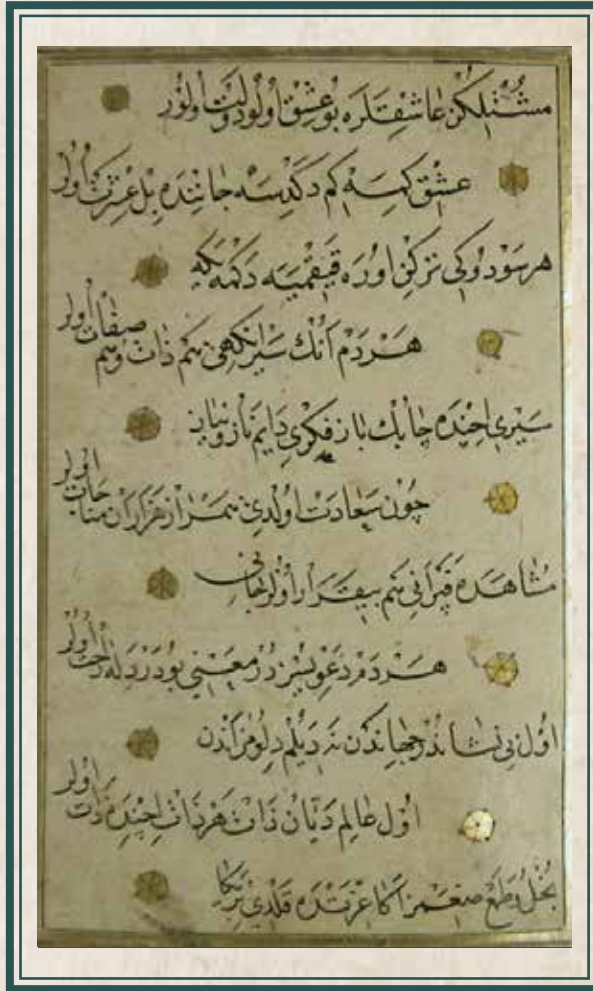 مشتلكن عاشقلره بو عشق اولو دولت اولور
عشق كمه كم دكديسه جاننده بل عزت اولر
هر سودوكي تركن اوره قيقميه دكمه يكه
هردم انك سيرانكهي هم ذات و هم صفات اولر
سيري اجنده چابك باز فكري دايم ناز و نياز
چون سعادت اولدي همراز هزاران مناجات اولر
مشاهده قراني هم بيقرار اولر جاني
هردم دعويسزدر معيني بو درد دله راحت اولر
اول بي نشاندر جهاندن نه ديلم دلومز اندن
اول عالم ديان ذات هر ذات اجنده ذات اولر
بخل و طمع صغمز اكا عزتده قلدي